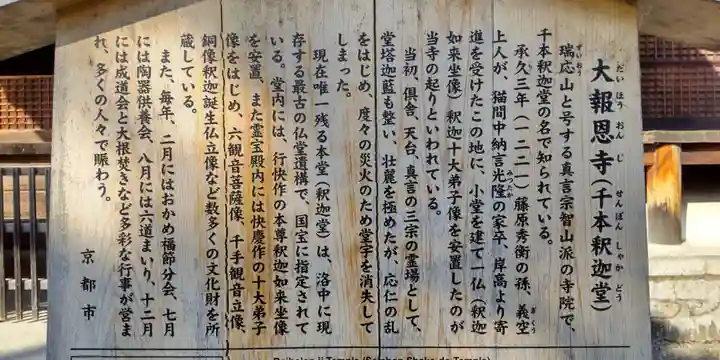 大報恩寺(千本釈迦堂)
だい ほう おん じ せんぼん しゃか どう
瑞応山と号する真言宗智山派の寺院で、
ずいおう
千本釈迦堂の名で知られている。
承久三年(一二二一)藤原秀衡の孫、義空
ぎくう
上人が、猫間中納言光隆の家卒、岸高より寄
みつたか
進を受けたこの地に、小堂を建て一仏(釈迦
如来坐像)釈迦十大弟子像を安置したのが
当寺の起りといわれている。
当初、倶舎、天台、真言の三宗の霊場として、
堂塔伽藍も整い、壮麗を極めたが、応仁の乱
をはじめ、度々の災火のため堂宇を消失して
しまった。
現在唯一残る本堂(釈迦堂)は、洛中に現
存する最古の仏堂遺構で、国宝に指定されて
いる。堂内には、行快作の本尊釈迦如来坐像
を安置、また霊宝殿内には快慶作の十大弟子
像をはじめ、六観音菩薩像、千手観音立像、
銅像釈迦誕生仏立像など数多くの文化財を所
蔵している。
また、毎年、二月にはおかめ福節分会、七月
には陶器供養会、八月には六道まいり、十二月
には成道会と大根焚きなど多彩な行事が営ま
れ、多くの人々で賑わう。
京都市
Daihoion-ji Temple (Senbon Shaka-do Temple)